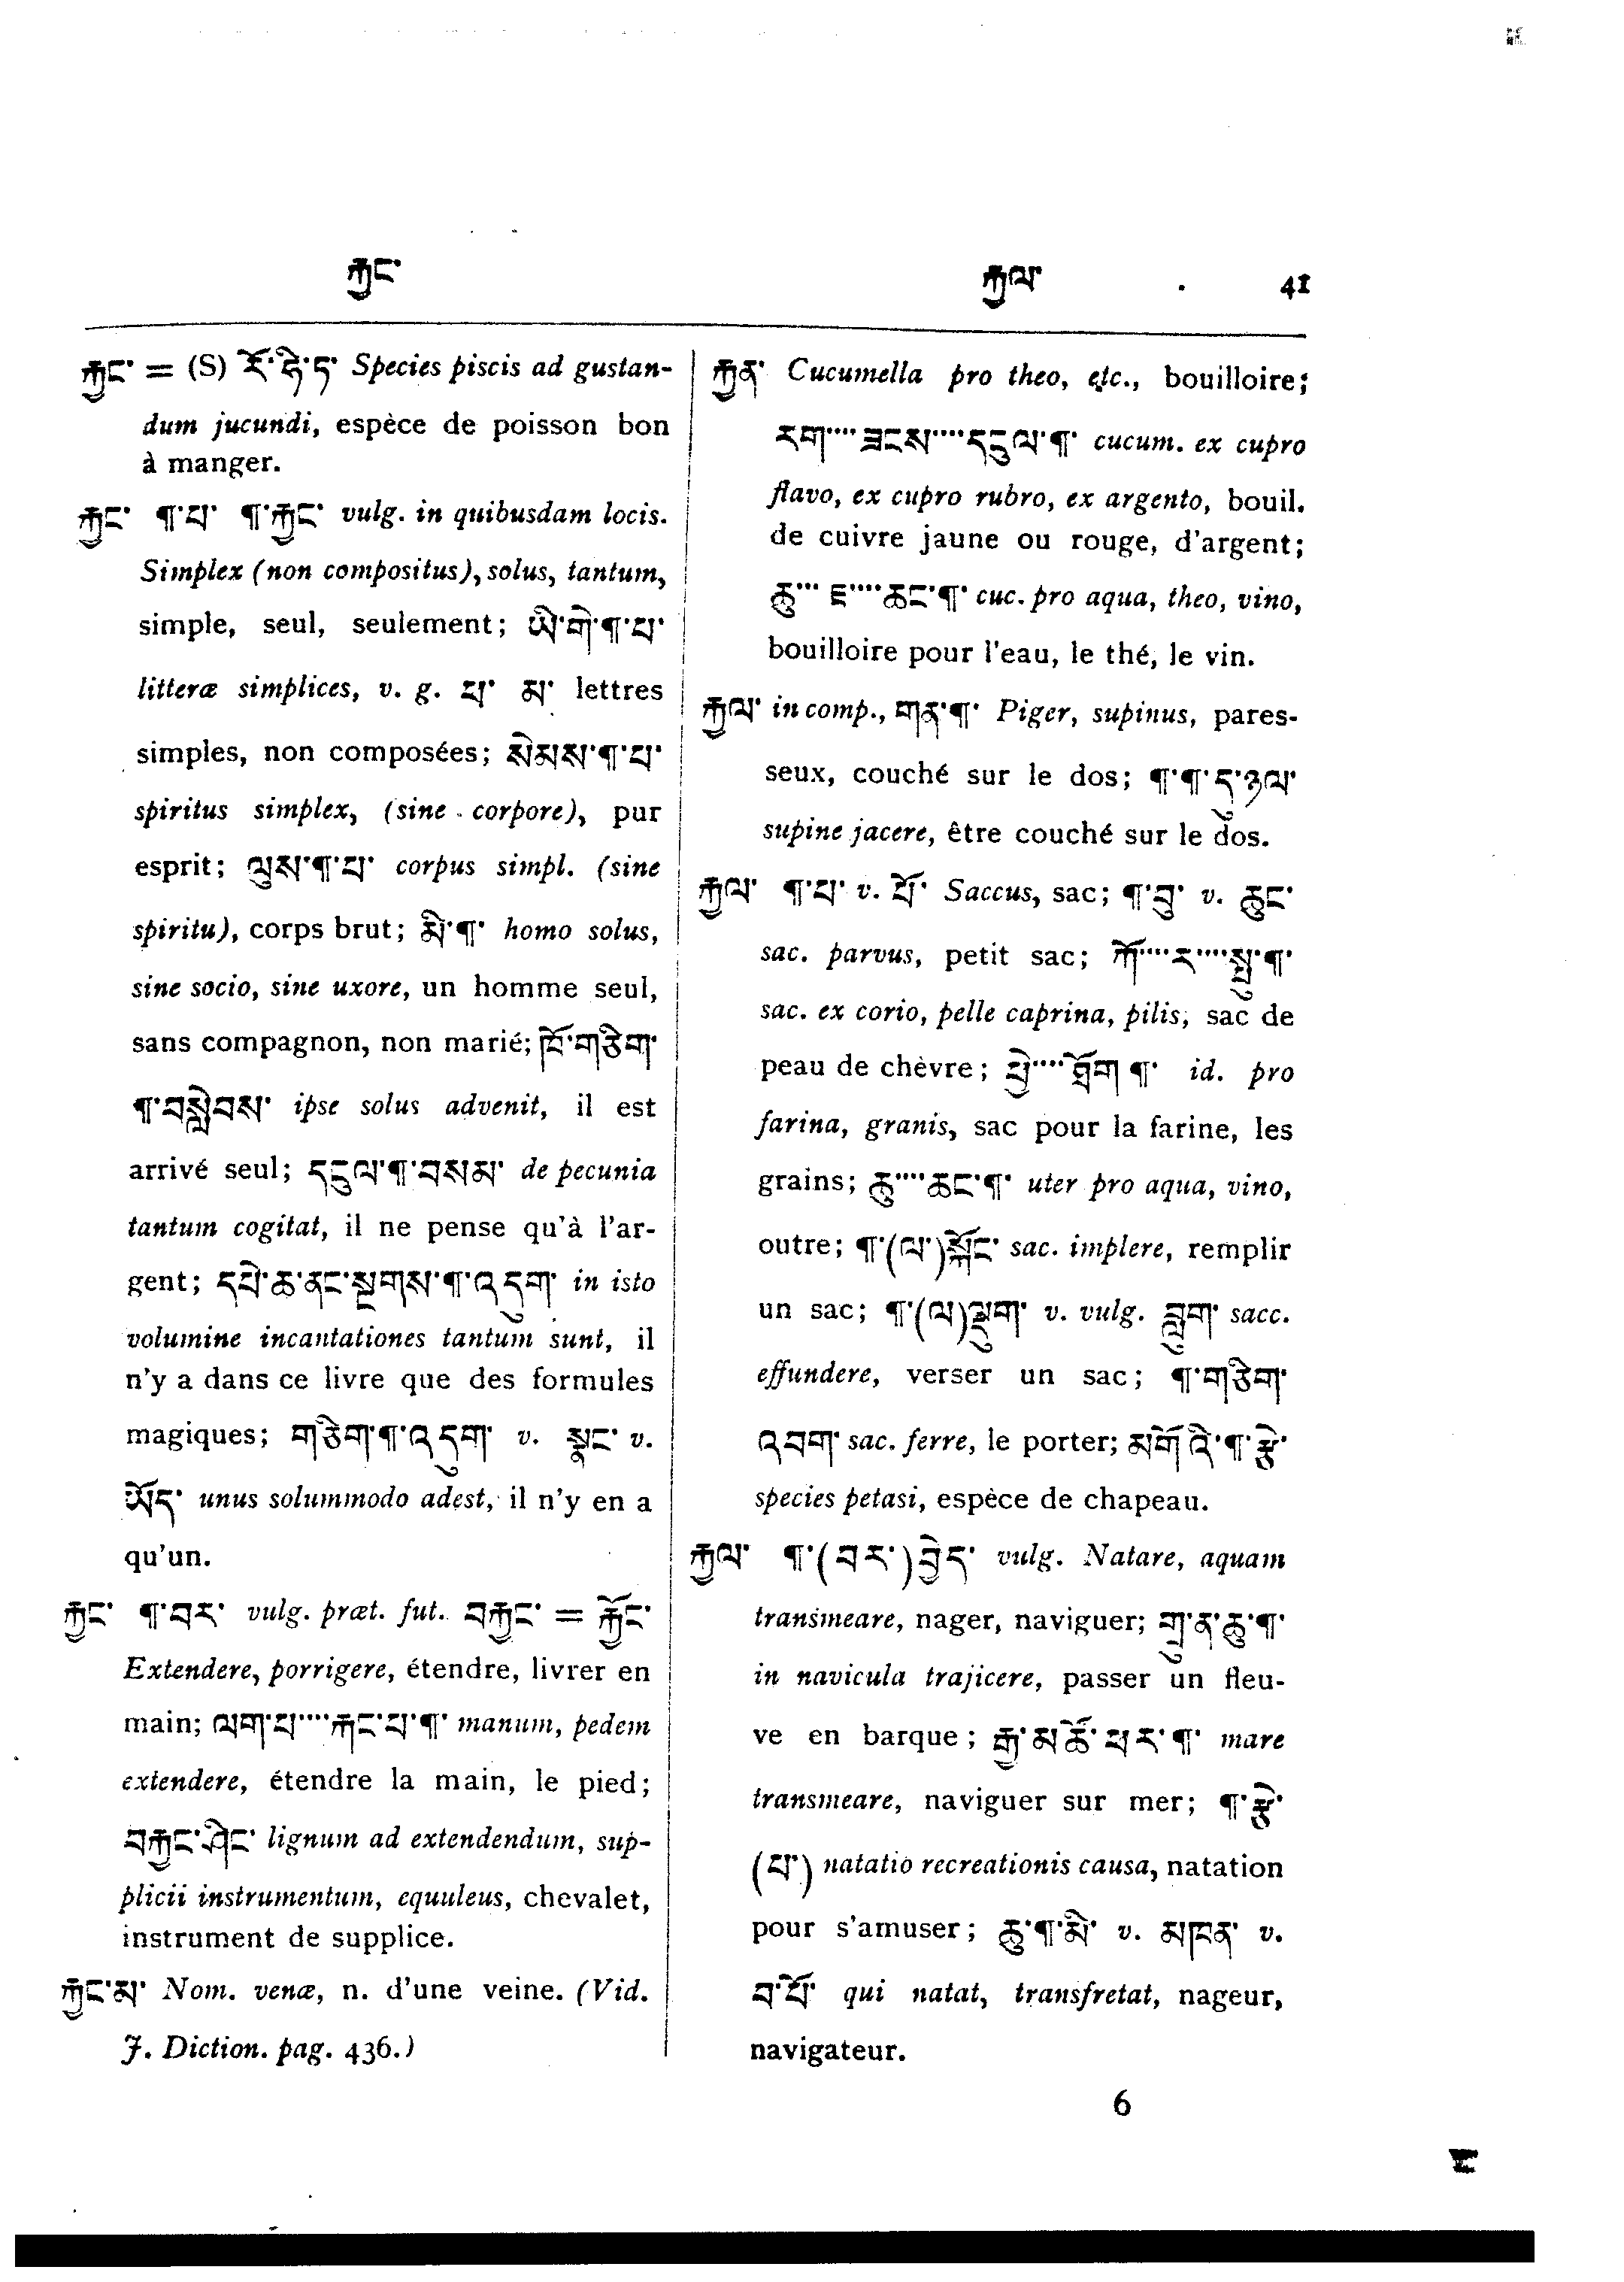 རྐྱང་
རྐྱལ་ 41
རྐྱང་ = (S) རོ་ཧི་ཏ་ Species piscis ad gustan-
dum jucundi, espèce de poisson bon
à manger.
རྐྱང་ ¶་པ་ ¶་རྐྱང་ vulg. in quibusdam locis.
Simplex (non compositus), solus, tantum,
simple, seul, seulement; ཡི་གེ་¶་པ་
litteræ simplices, v. g. པ་ མ་ lettres
simples, non composées; སེམས་¶་པ་
spiritus simplex, (sine corpore), pur
esprit; ལུས་¶་པ་ corpus simpl. (sine
spiritu), corps brut; མི་¶་ homo solus,
sine socio, sine uxore, un homme seul,
sans compagnon, non marié; ཁོ་གཅིག་
¶་བསླེབས་ ipse solus advenit, il est
arrivé seul; དངུལ་¶་བསམ་ de pecunia
tantum cogitat, il ne pense qu'à l'ar-
gent; དཔེ་ཆ་ནང་སྔགས་¶་འདུག་ in isto
volumine incantationes tantum sunt, il
n'y a dans ce livre que des formules
magiques; གཅིག་¶་འདུག་ v. སྣང་ v.
ཡོད་ unus solummodo adest, il n'y en a
qu'un.
རྐྱང་ ¶་བར་ vulg. præt. fut. བརྐྱང་ = རྐྱོང་
Extendere, porrigere, étendre, livrer en
main; ལག་པ་····རྐང་པ་¶་ manum, pedem
extendere, étendre la main, le pied;
བརྐྱང་ཤིང་ lignum ad extendendum, sup-
plicii instrumentum, equuleus, chevalet,
instrument de supplice.
རྐྱང་མ་ Nom. venæ, n. d'une veine. (Vid.
J. Diction. pag. 436.)
རྐྱན་ Cucumella pro theo, etc., bouilloire;
རག་···· ཟངས་····དངུལ་¶་ cucum. ex cupro
flavo, ex cupro rubro, ex argento, bouil.
de cuivre jaune ou rouge, d'argent;
ཆུ་··· ཇ་····ཆང་¶་ cuc. pro aqua, theo, vino,
bouilloire pour l'eau, le thé, le vin.
རྐྱལ་ in comp., གན་¶་ Piger, supinus, pares-
seux, couché sur le dos; ¶་¶་དུ་ཉལ་
supine jacere, être couché sur le dos.
རྐྱལ་ ¶་པ་ v. པོ་ Saccus, sac; ¶་བུ་ v. ཆུང་
sac. parvus, petit sac; ཀོ་····ར་····སྤུ་¶་
sac. ex corio, pelle caprina, pilis, sac de
peau de chèvre; ཕྱེ་····ཐོག ¶་ id. pro
farina, granis, sac pour la farine, les
grains; ཆུ་····ཆང་¶་ uter pro aqua, vino,
outre; ¶་(ལ་)སྐོང་ sac. implere, remplir
un sac; ¶་(ལ)ལྡུག་ v. vulg. བླུག་ sacc.
effundere, verser un sac; ¶་གཅིག་
འབག་ sac. ferre, le porter; མགོ་འི་¶་རྩེ་
species petasi, espèce de chapeau.
རྐྱལ་ ¶་(བར་)བྱེད་ vulg. Natare, aquam
transmeare, nager, naviguer; གྲུ་ན་ཆུ་¶་
in navicula trajicere, passer un fleu-
ve en barque; རྒྱ་མཚོ་པར་¶་ mare
transmeare, naviguer sur mer; ¶་རྩེ་
(པ་) natatio recreationis causa, natation
pour s'amuser; ཆུ་¶་མི་ v. མཁན་ v.
བ་པོ་ qui natat, transfretat, nageur,
navigateur.
6